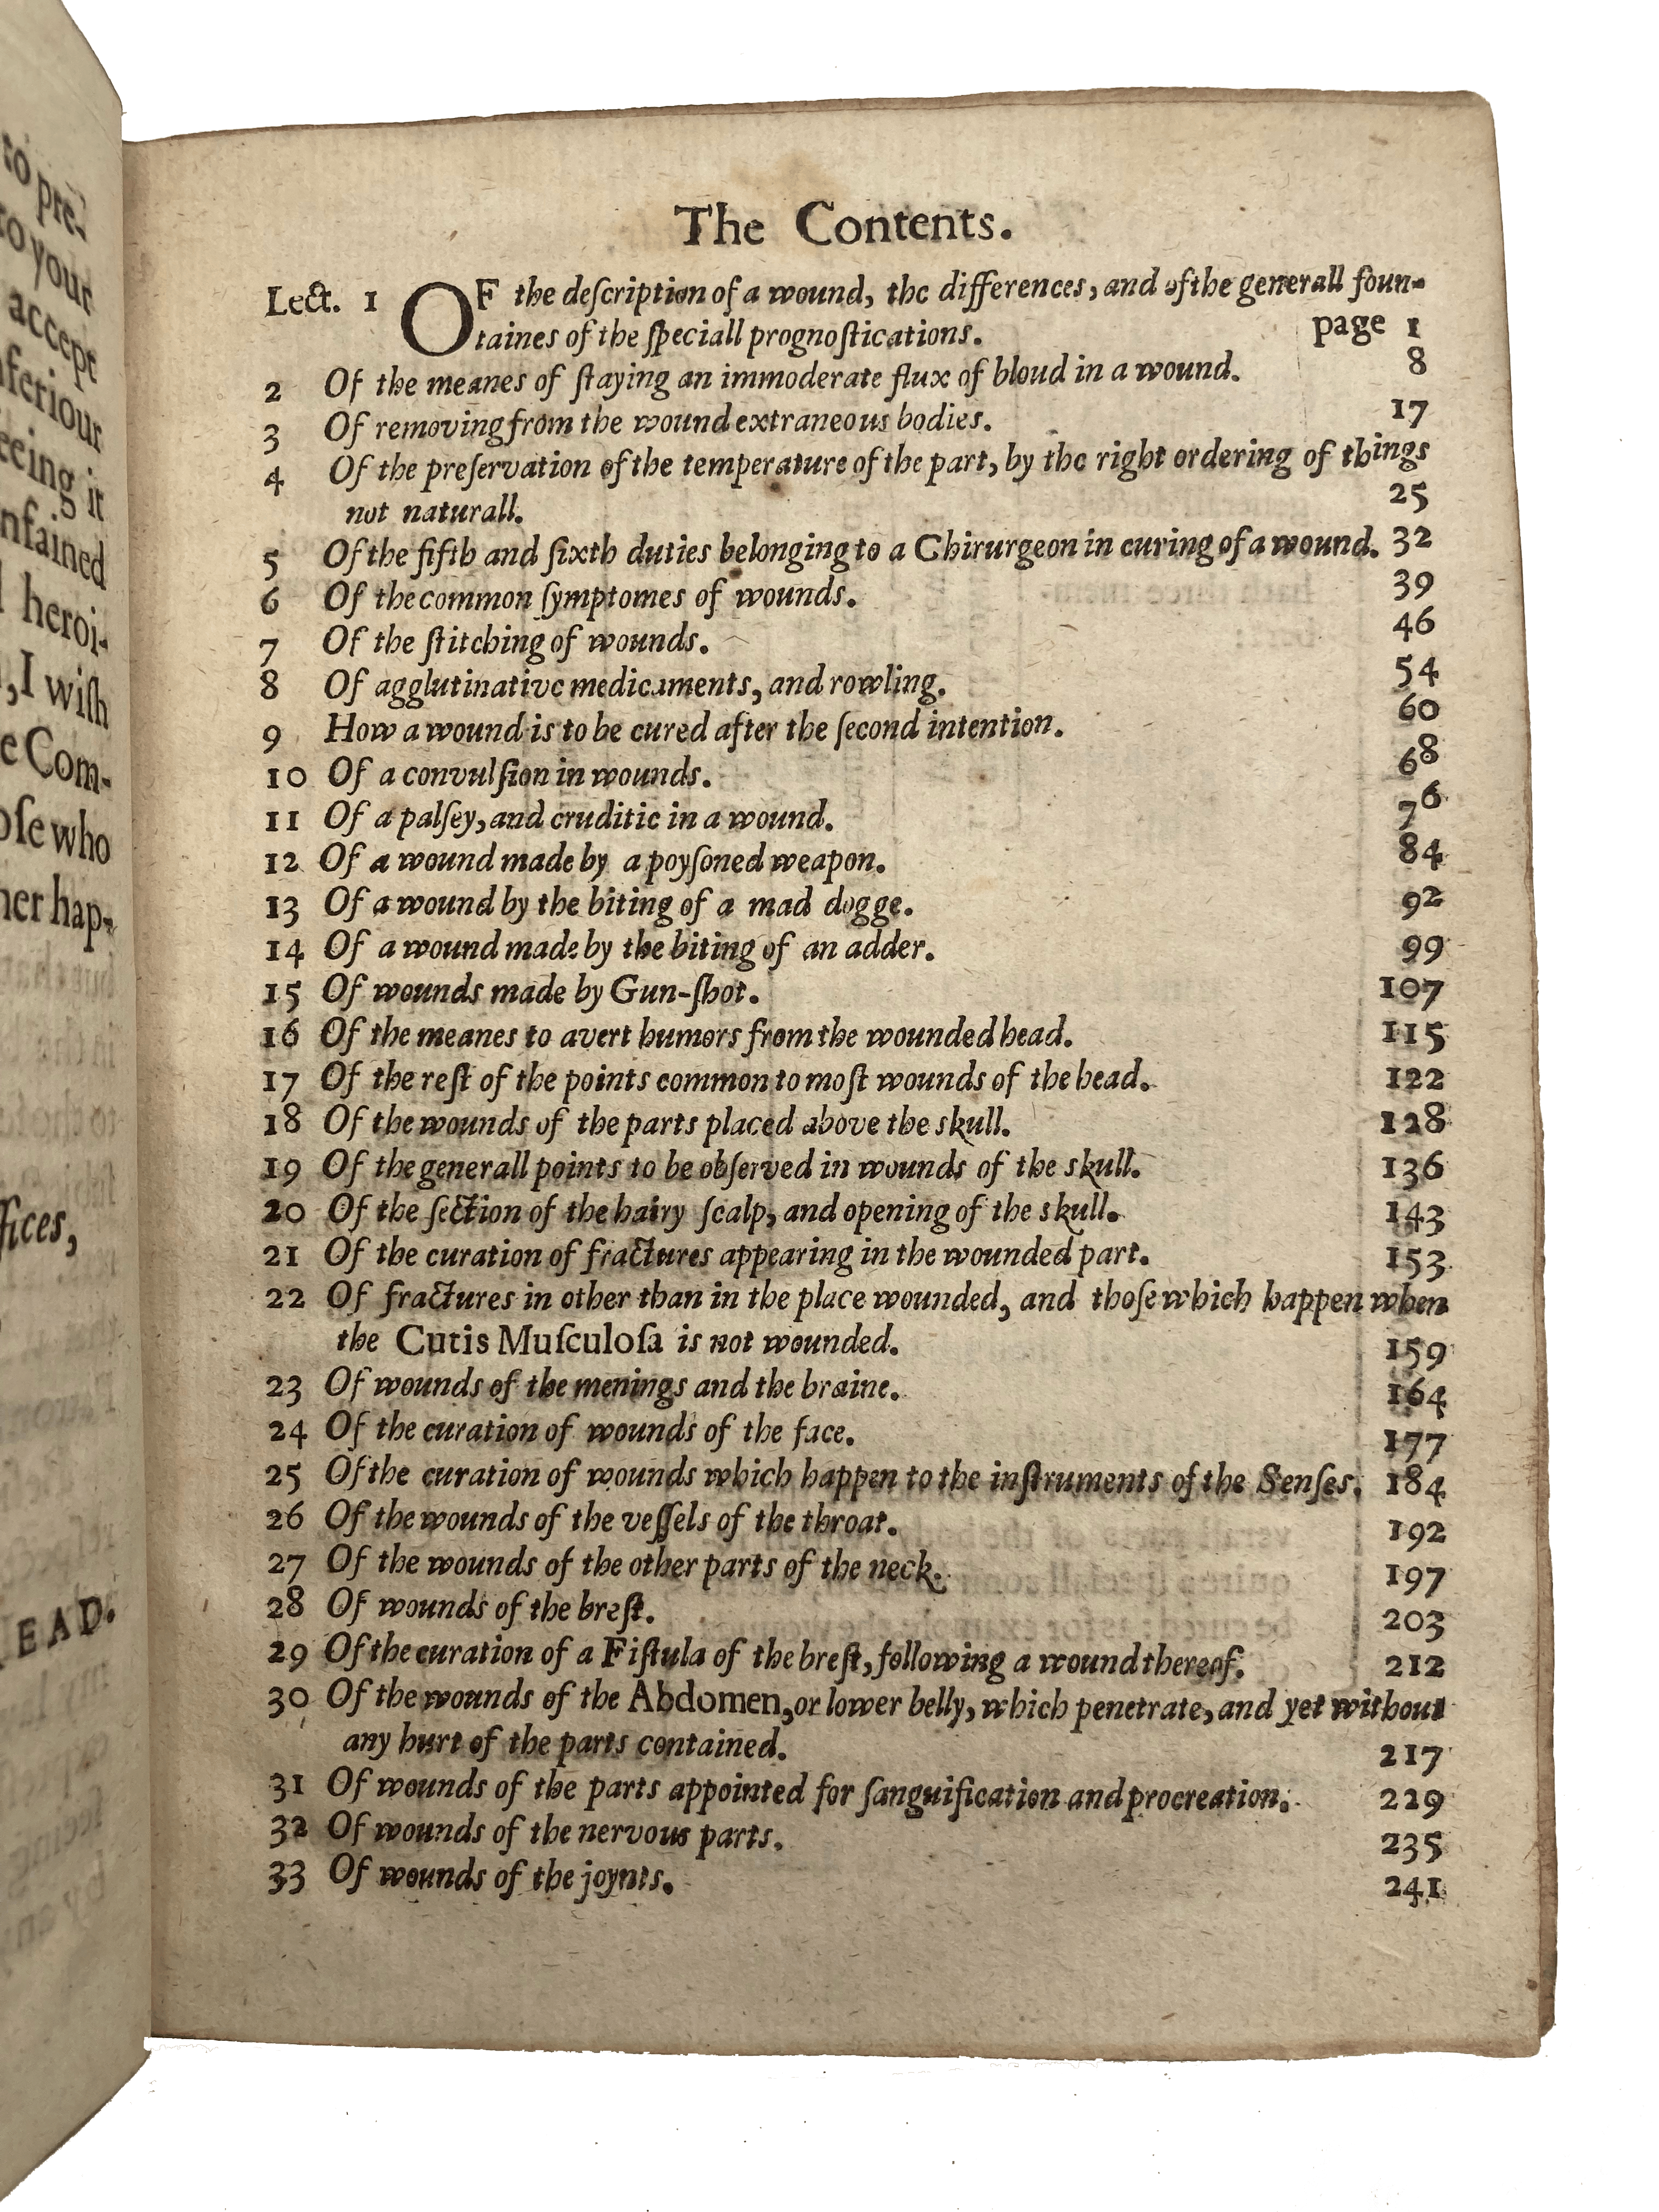 to pre-
to your
accept
ferious
eeing it
nfained
heroi-
,I wiſh
e Com-
oſe who
her hap-
fices,
EAD.
The Contents.
Lect. 1 OF the deſcription of a wound, the differences, and of the generall foun-
taines of the ſpeciall prognoſtications. page 1
2 Of the meanes of ſtaying an immoderate flux of bloud in a wound. 8
3 Of removing from the wound extraneous bodies. 17
4 Of the preſervation of the temperature of the part, by the right ordering of things
not naturall. 25
5 Of the fifth and ſixth duties belonging to a Chirurgeon in curing of a wound. 32
6 Of the common ſymptomes of wounds. 39
7 Of the ſtitching of wounds. 46
8 Of agglutinative medicaments, and rowling. 54
9 How a wound is to be cured after the ſecond intention. 60
10 Of a convulſion in wounds. 68
11 Of a palſey, and cruditie in a wound. 76
12 Of a wound made by a poyſoned weapon. 84
13 Of a wound by the biting of a mad dogge. 92
14 Of a wound made by the biting of an adder. 99
15 Of wounds made by Gun-ſhot. 107
16 Of the meanes to avert humors from the wounded head. 115
17 Of the reſt of the points common to moſt wounds of the head. 122
18 Of the wounds of the parts placed above the skull. 128
19 Of the generall points to be obſerved in wounds of the skull. 136
20 Of the ſection of the hairy ſcalp, and opening of the skull. 143
21 Of the curation of fractures appearing in the wounded part. 153
22 Of fractures in other than in the place wounded, and thoſe which happen when
the Cutis Muſculoſa is not wounded. 159
23 Of wounds of the menings and the braine. 164
24 Of the curation of wounds of the face. 177
25 Of the curation of wounds which happen to the inſtruments of the Senſes. 184
26 Of the wounds of the veſſels of the throat. 192
27 Of the wounds of the other parts of the neck. 197
28 Of wounds of the breſt. 203
29 Of the curation of a Fiſtula of the breſt, following a wound thereof. 212
30 Of the wounds of the Abdomen, or lower belly, which penetrate, and yet without
any hurt of the parts contained. 217
31 Of wounds of the parts appointed for ſanguification and procreation. 229
32 Of wounds of the nervous parts. 235
33 Of wounds of the joynts. 241